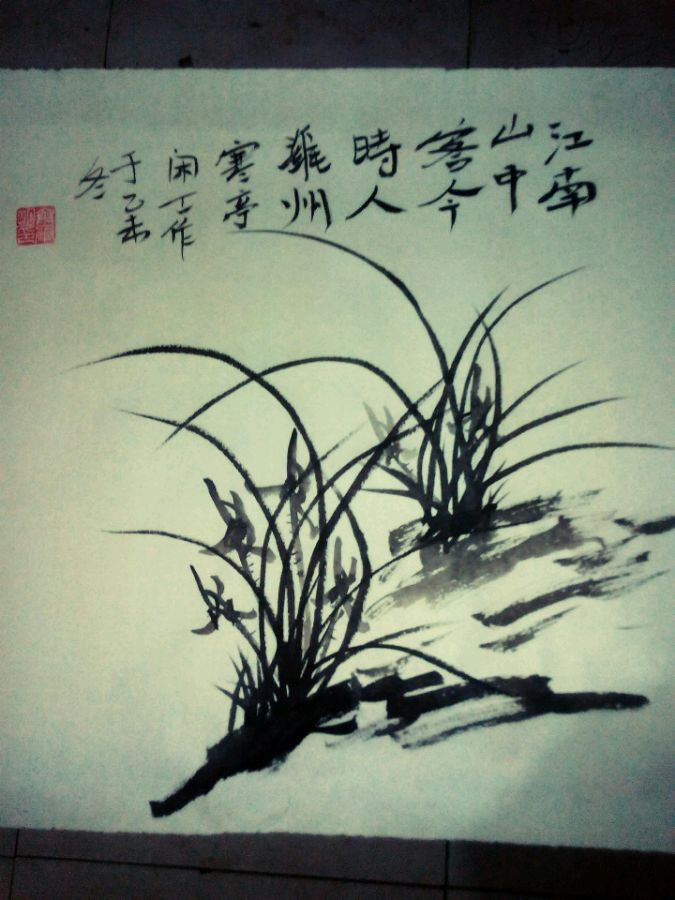 江南
山中
客今
時人
州
寒亭
闲丁作
于乙未
冬